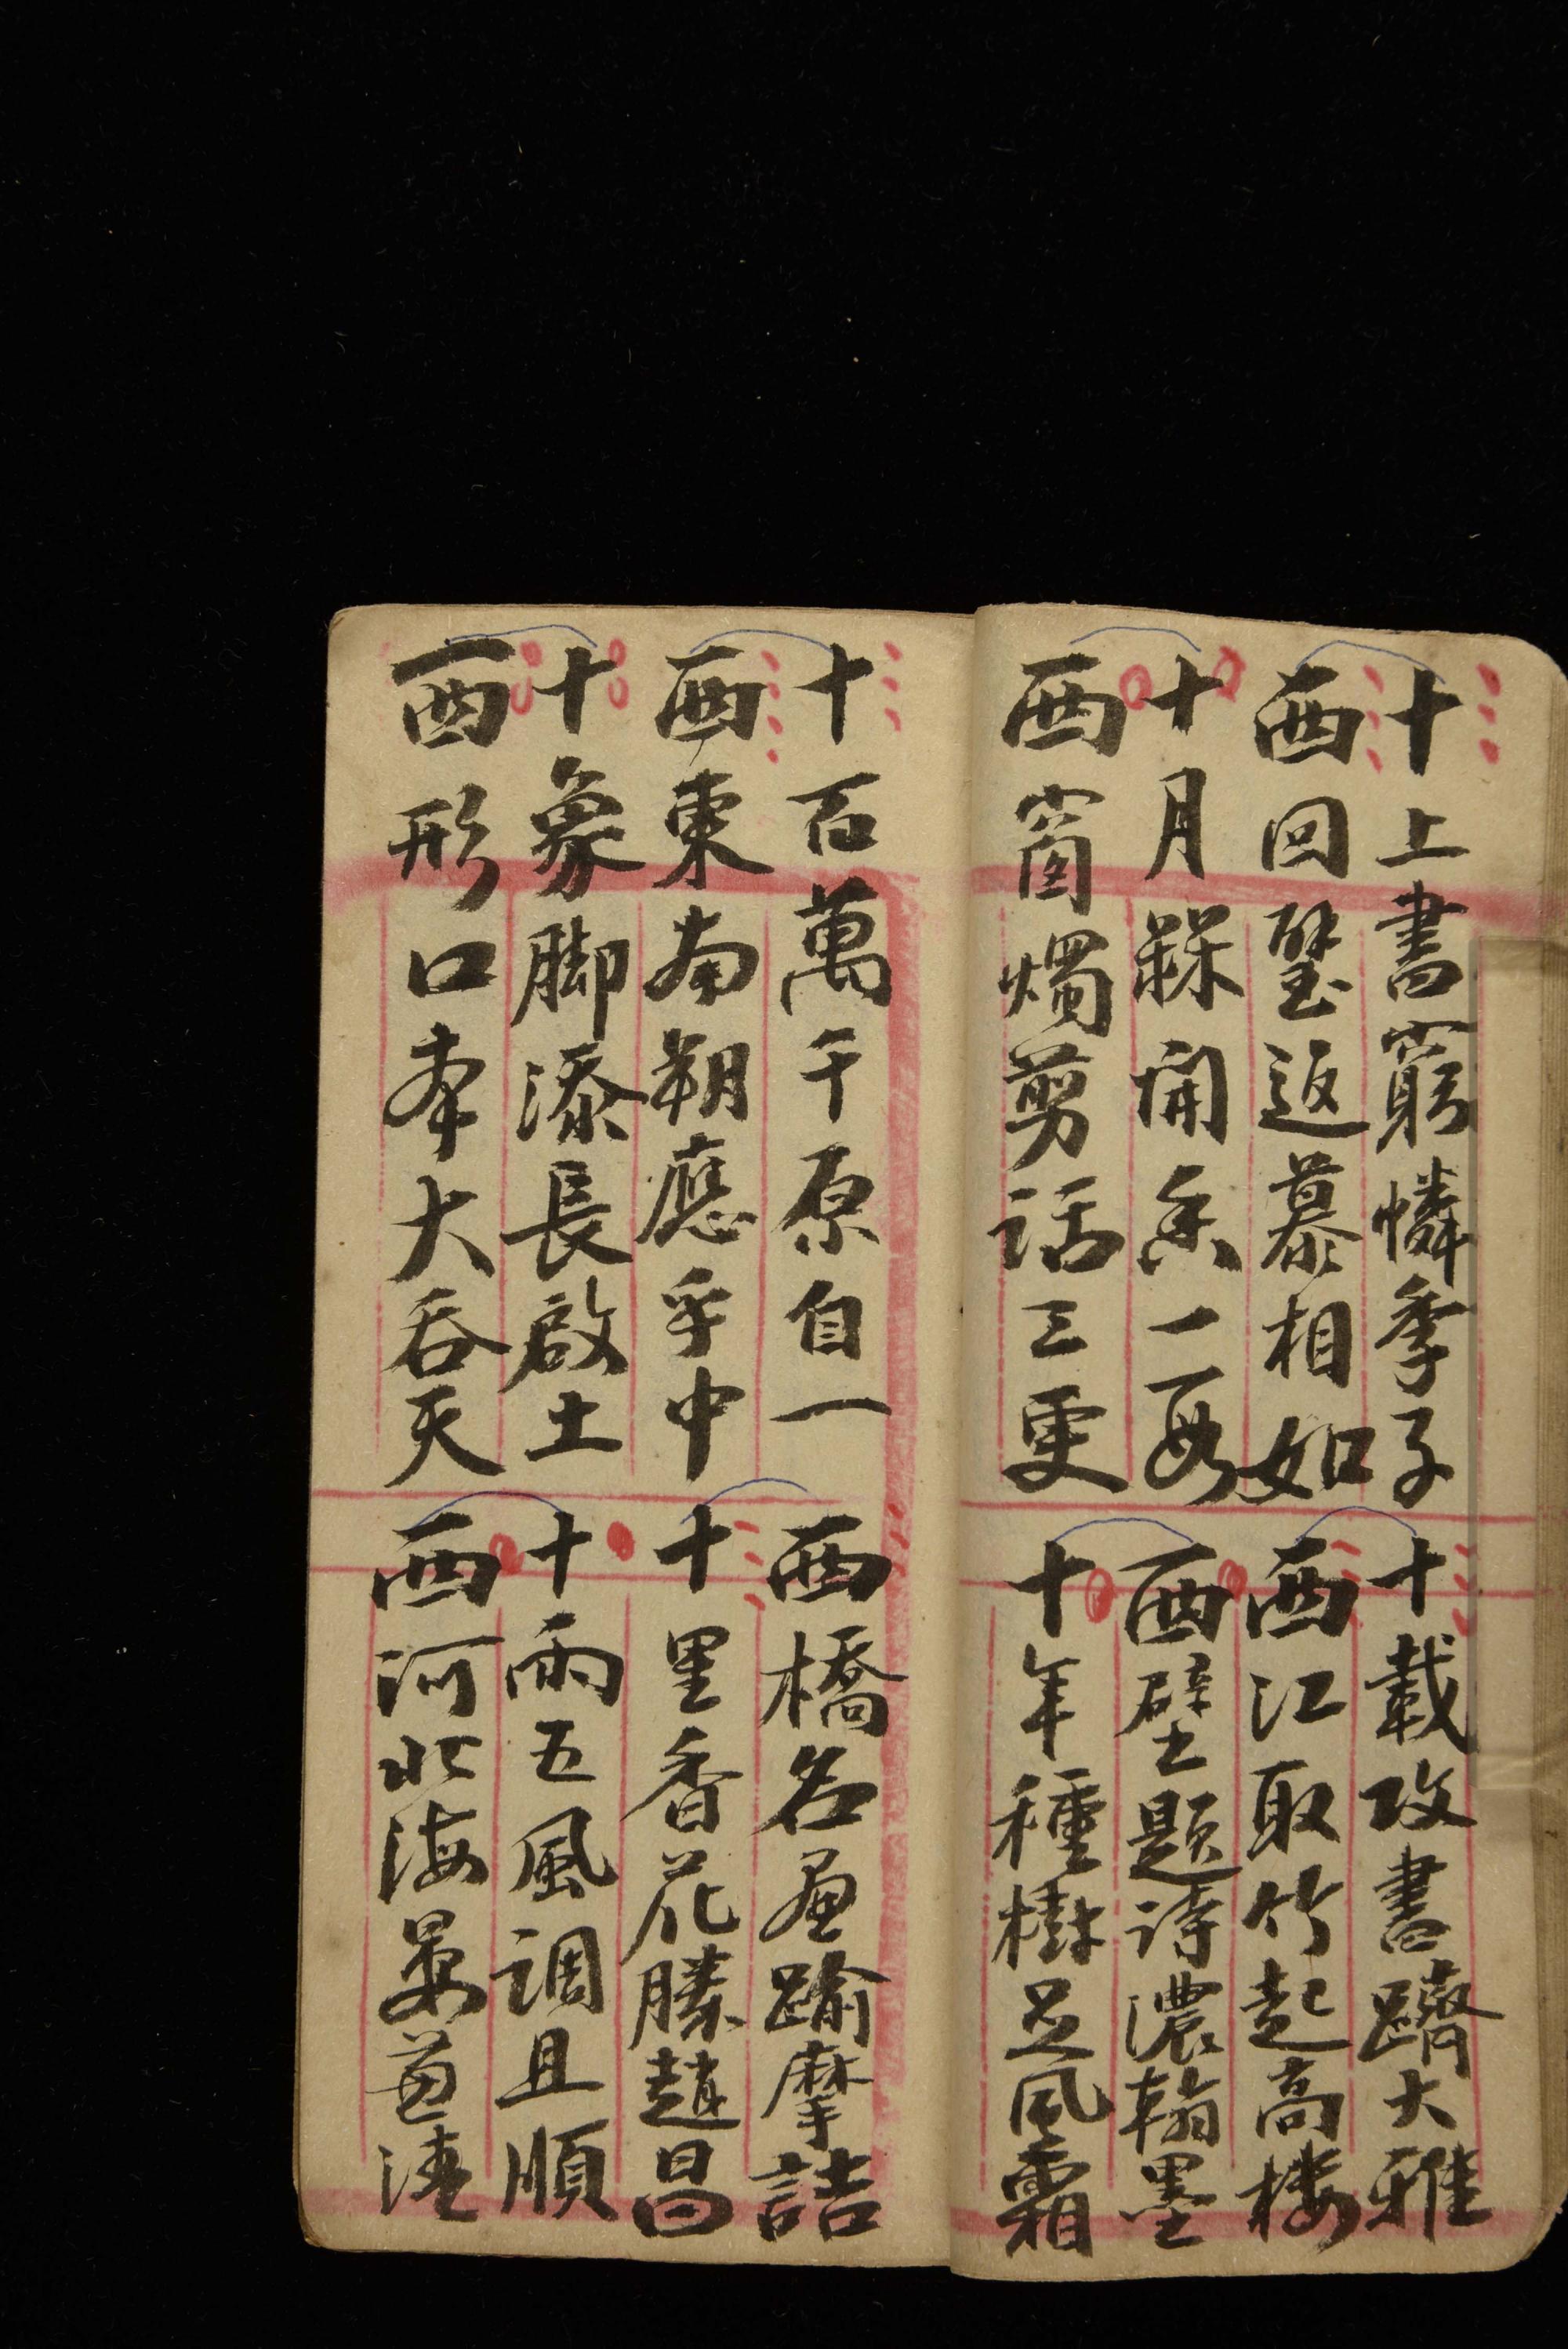 十上書窮憐季子
西回璧返慕相如
十月槑開香一段
西窗燭剪話三更
十載攻書躋大雅
西江取竹起高楼
西壁题诗濃翰墨
十年種樹足風霜
十百萬千原自一
西東南朔應乎中
十象脚添長啟土
西形口大吞天
西橋名畫踰摩詰
十里香花勝趙昌
十雨五風調且順
西河北海晏兼清